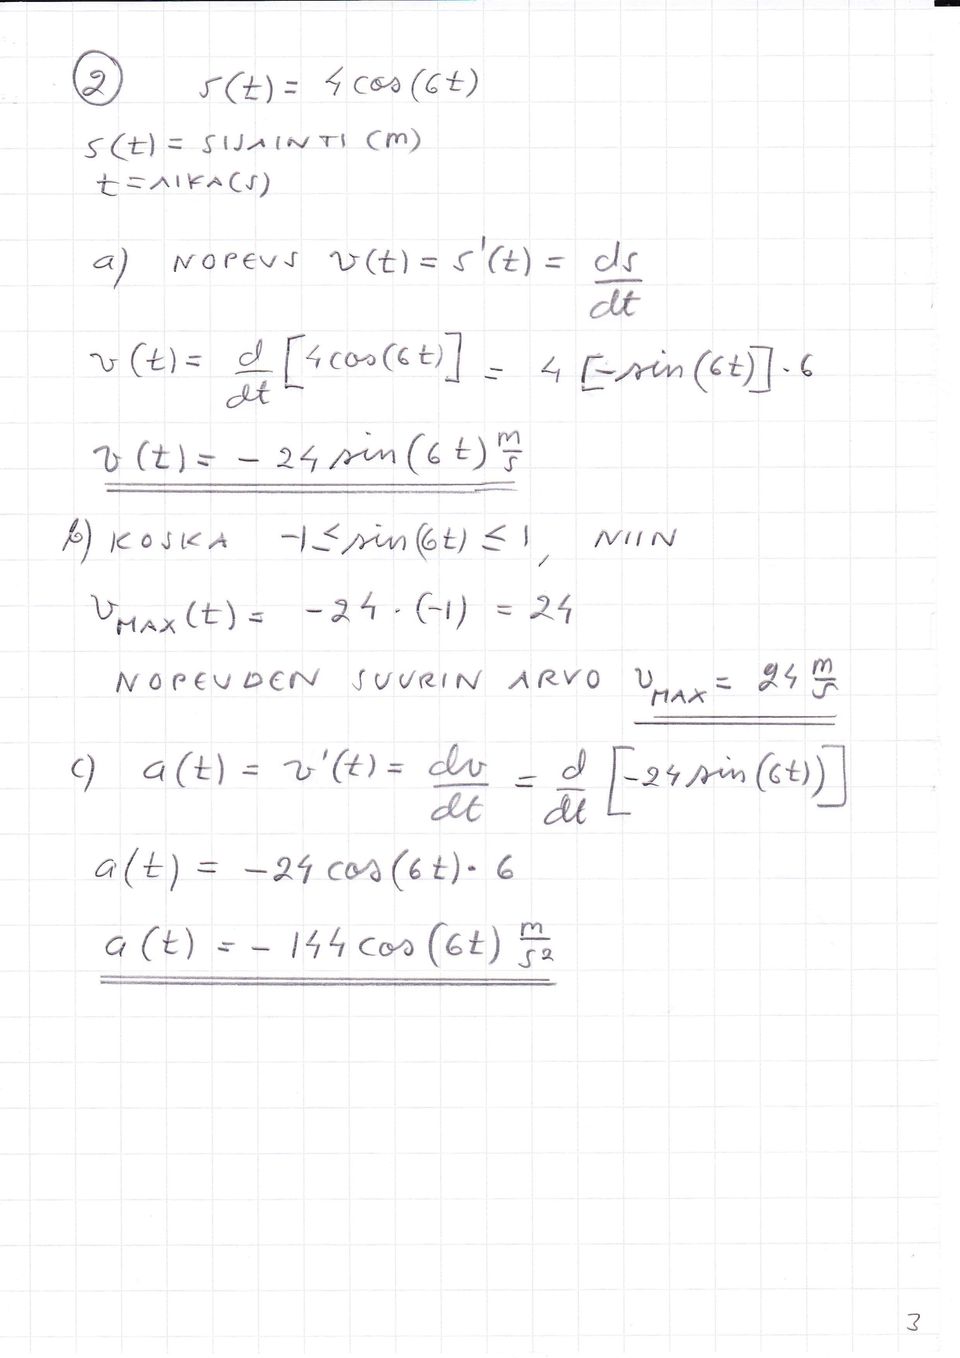 ② s(t) = 4 cos(6t)
s(t) = SIJAINTI (m)
t = AIKA (s)
a) NOPEUS v(t) = s'(t) = ds/dt
v(t) = d/dt [4cos(6t)] = 4 [-sin(6t)]·6
v(t) = -24 sin(6t) m/s
b) KOSKA -1 ≤ sin(6t) ≤ 1, NIIN
v_MAX(t) = -24·(-1) = 24
NOPEUDEN SUURIN ARVO v_MAX = 24 m/s
c) a(t) = v'(t) = dv/dt = d/dt [-24 sin(6t))]
a(t) = -24 cos(6t)·6
a(t) = -144 cos(6t) m/s2
3